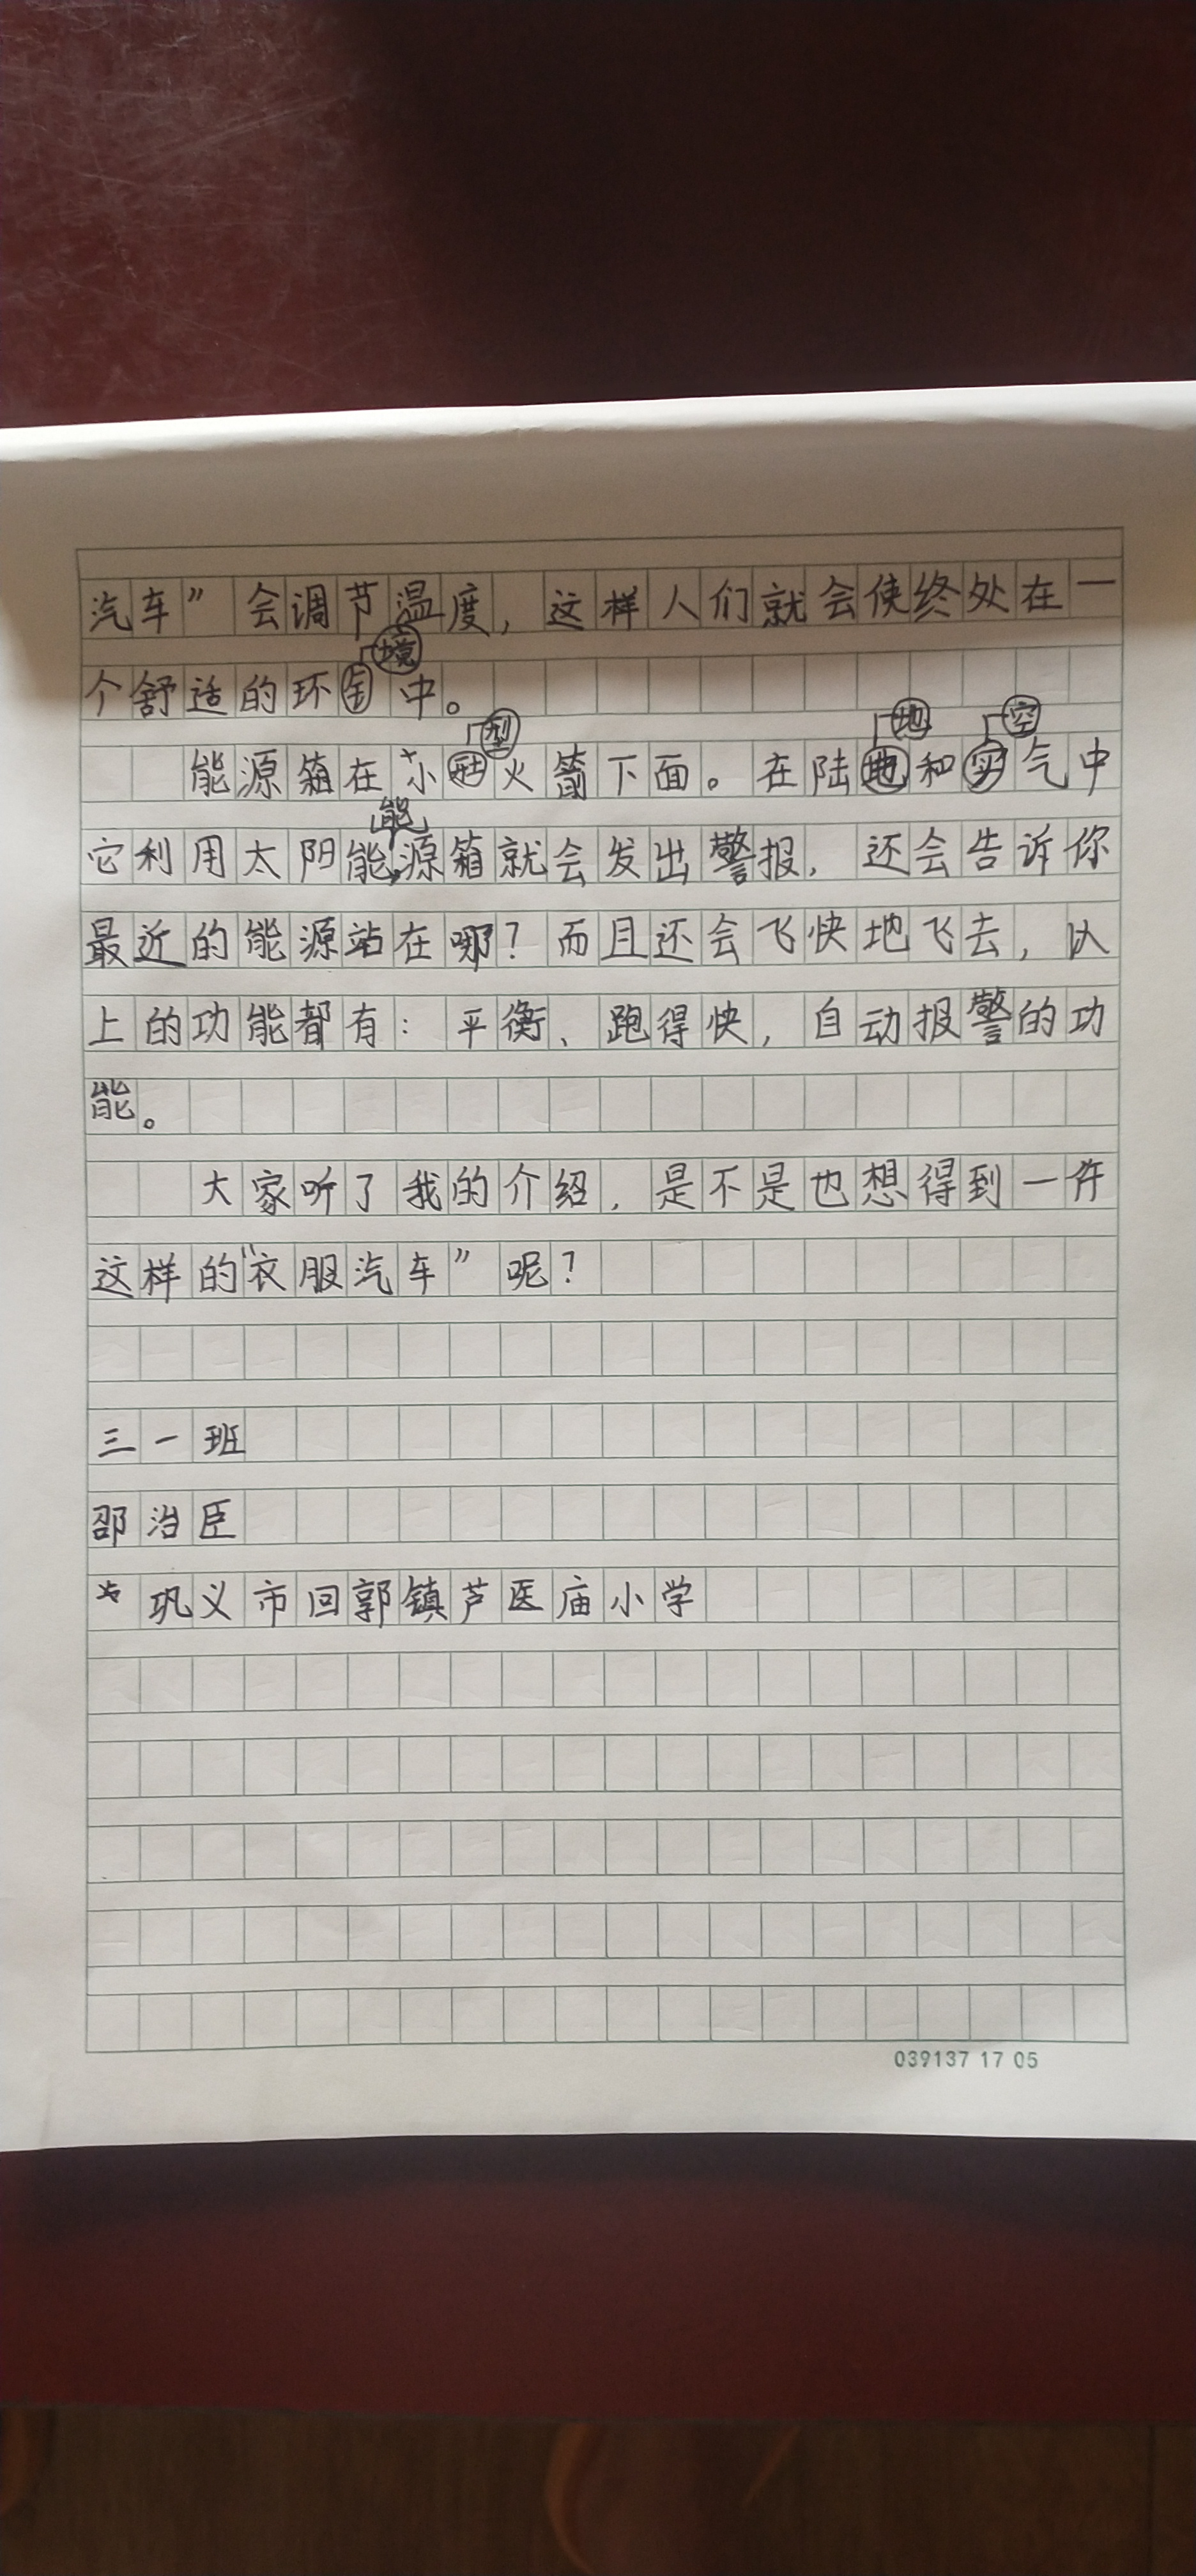 汽车”会调节温度，这样人们就会使终处在一
个舒适的环境中。
能源箱在小型火箭下面。在陆地和空气中
它利用太阳能，能源箱就会发出警报，还会告诉你
最近的能源站在哪？而且还会飞快地飞去，以
上的功能都有：平衡、跑得快，自动报警的功
能。
大家听了我的介绍，是不是也想得到一件
这样的“衣服汽车”呢？
三一班
邵治臣
巩义市回郭镇芦医庙小学
039137 17 05